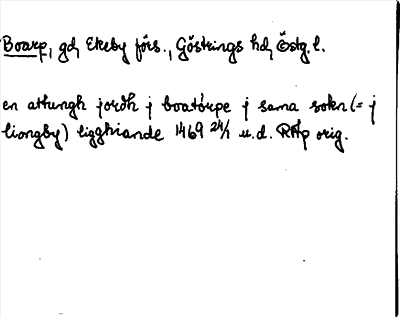 Boarp, gd, Ekebyförs., Göstrings hd, Östg. l.
en attungh jordh j boatorpe j sama sokn (= j
liongby) ligghiande 1469 24/1 u.d. RAp orig.